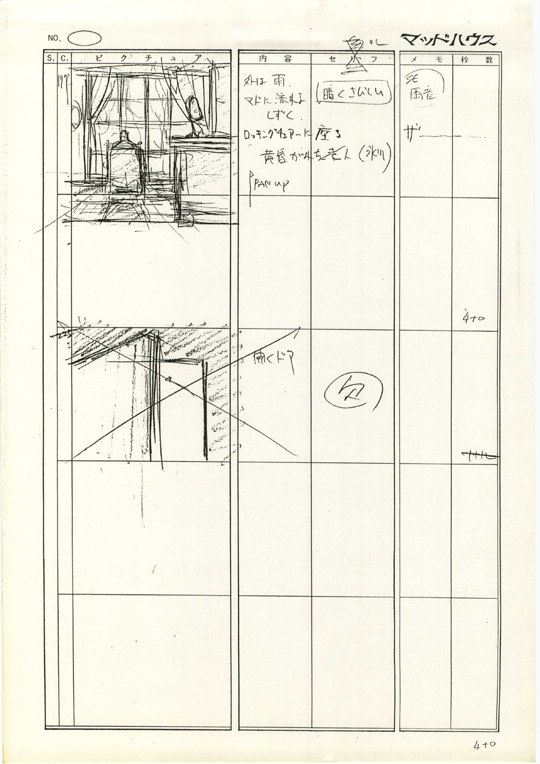 NO.
マッドハウス
S. C. ピクチュア 内容 セリフ メモ 秒数
外は 雨.
マドに流れる
しずく.
ロッキングチェアーに 座る
PAN UP
暗くさびしい
SE
雨音
ザー
4+0
開くドア
欠
4+0